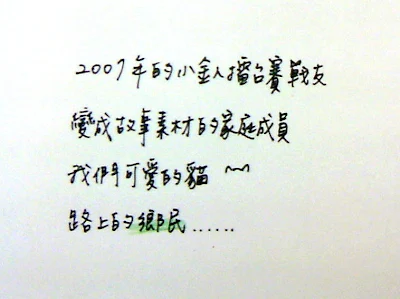 2007年的小金人擂台賽戰友
變成故事素材的家庭成員
我們可愛的貓~
路上的鄉民......